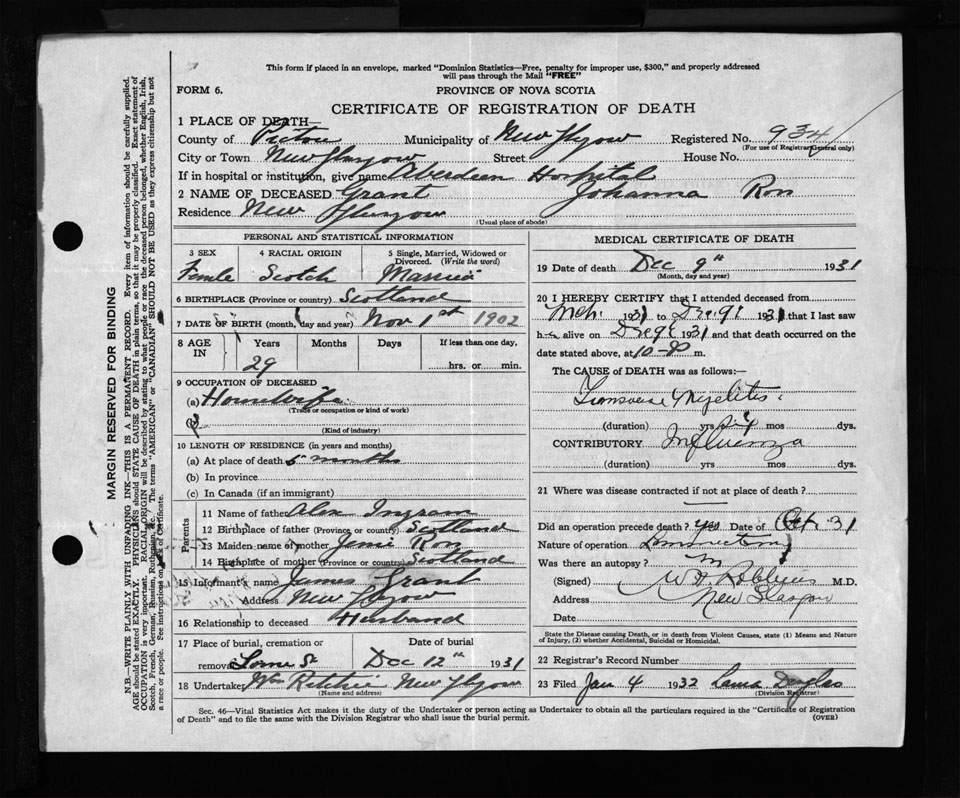 This form if placed in an envelope, marked "Dominion Statistics—Free, penalty for improper use, $300," and properly addressed
will pass through the Mail "FREE"
FORM 6.
PROVINCE OF NOVA SCOTIA
CERTIFICATE OF REGISTRATION OF DEATH
1 PLACE OF DEATH—
County of Pictou Municipality of New Glasgow Registered No. 934
(For use of Registrar General only)
City or Town New Glasgow Street House No.
If in hospital or institution, give name Aberdeen Hospital
2 NAME OF DECEASED Grant Johanna
Residence New Glasgow
(Usual place of abode)
PERSONAL AND STATISTICAL INFORMATION
3 SEX 4 RACIAL ORIGIN 5 Single, Married, Widowed or Divorced. (Write the word)
Female Scotch Married
6 BIRTHPLACE (Province or country) Scotland
7 DATE OF BIRTH (month, day and year) Nov 1st 1902
8 AGE IN Years Months Days If less than one day,
29 hrs. or min.
9 OCCUPATION OF DECEASED
(a) Housewife
(Trade or occupation or kind of work)
(b)
(Kind of industry)
10 LENGTH OF RESIDENCE (in years and months)
(a) At place of death 5 months
(b) In province
(c) In Canada (if an immigrant)
Parents
11 Name of father Alex Ingram
12 Birthplace of father (Province or country) Scotland
13 Maiden name of mother
14 Birthplace of mother (Province or country) Scotland
15 Informant's name James Grant
Address New Glasgow
16 Relationship to deceased Husband
17 Place of burial, cremation or Date of burial
removal Lorne St Dec 12th 1931
18 Undertaker Wm Ritchie New Glasgow
(Name and address)
MEDICAL CERTIFICATE OF DEATH
19 Date of death Dec 9th 1931
(Month, day and year)
20 I HEREBY CERTIFY that I attended deceased from
1931 to Dec 9 1931 that I last saw
h alive on Dec 9 1931 and that death occurred on the
date stated above, at 10- m.
The CAUSE of DEATH was as follows:—
Transverse Myelitis
(duration) yrs mos dys.
CONTRIBUTORY Influenza
(duration) yrs mos dys.
21 Where was disease contracted if not at place of death?
Did an operation precede death? yes Date of Oct 31
Nature of operation
Was there an autopsy?
(Signed) M.D.
Address New Glasgow
Date
State the Disease causing Death, or in death from Violent Causes, state (1) Means and Nature
of Injury, (2) whether Accidental, Suicidal or Homicidal.
22 Registrar's Record Number
23 Filed Jan 4 1932
(Division Registrar)
Sec. 46—Vital Statistics Act makes it the duty of the Undertaker or person acting as Undertaker to obtain all the particulars required in the "Certificate of Registration
of Death" and to file the same with the Division Registrar who shall issue the burial permit.
(OVER)
MARGIN RESERVED FOR BINDING
N.B.—WRITE PLAINLY WITH UNFADING INK—THIS IS A PERMANENT RECORD. Every item of information should be carefully supplied.
AGE should be stated EXACTLY. PHYSICIANS should STATE CAUSE OF DEATH in plain terms, so that it may be properly classified. Exact statement of
OCCUPATION is very important. RACIAL ORIGIN will be described by stating to what people or race the deceased person belonged, whether English, Irish,
Scotch, French, German, Russian, Ruthenian, etc. The terms "AMERICAN" or "CANADIAN" SHOULD NOT BE USED as they express citizenship but not
a race or people. See instructions on back of Certificate.